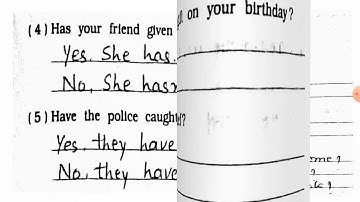 (4) Has your friend given
on your birthday?
Yes, She has.
No, She has
(5) Have the police caught
Yes, they have
No, they have
?
?
?